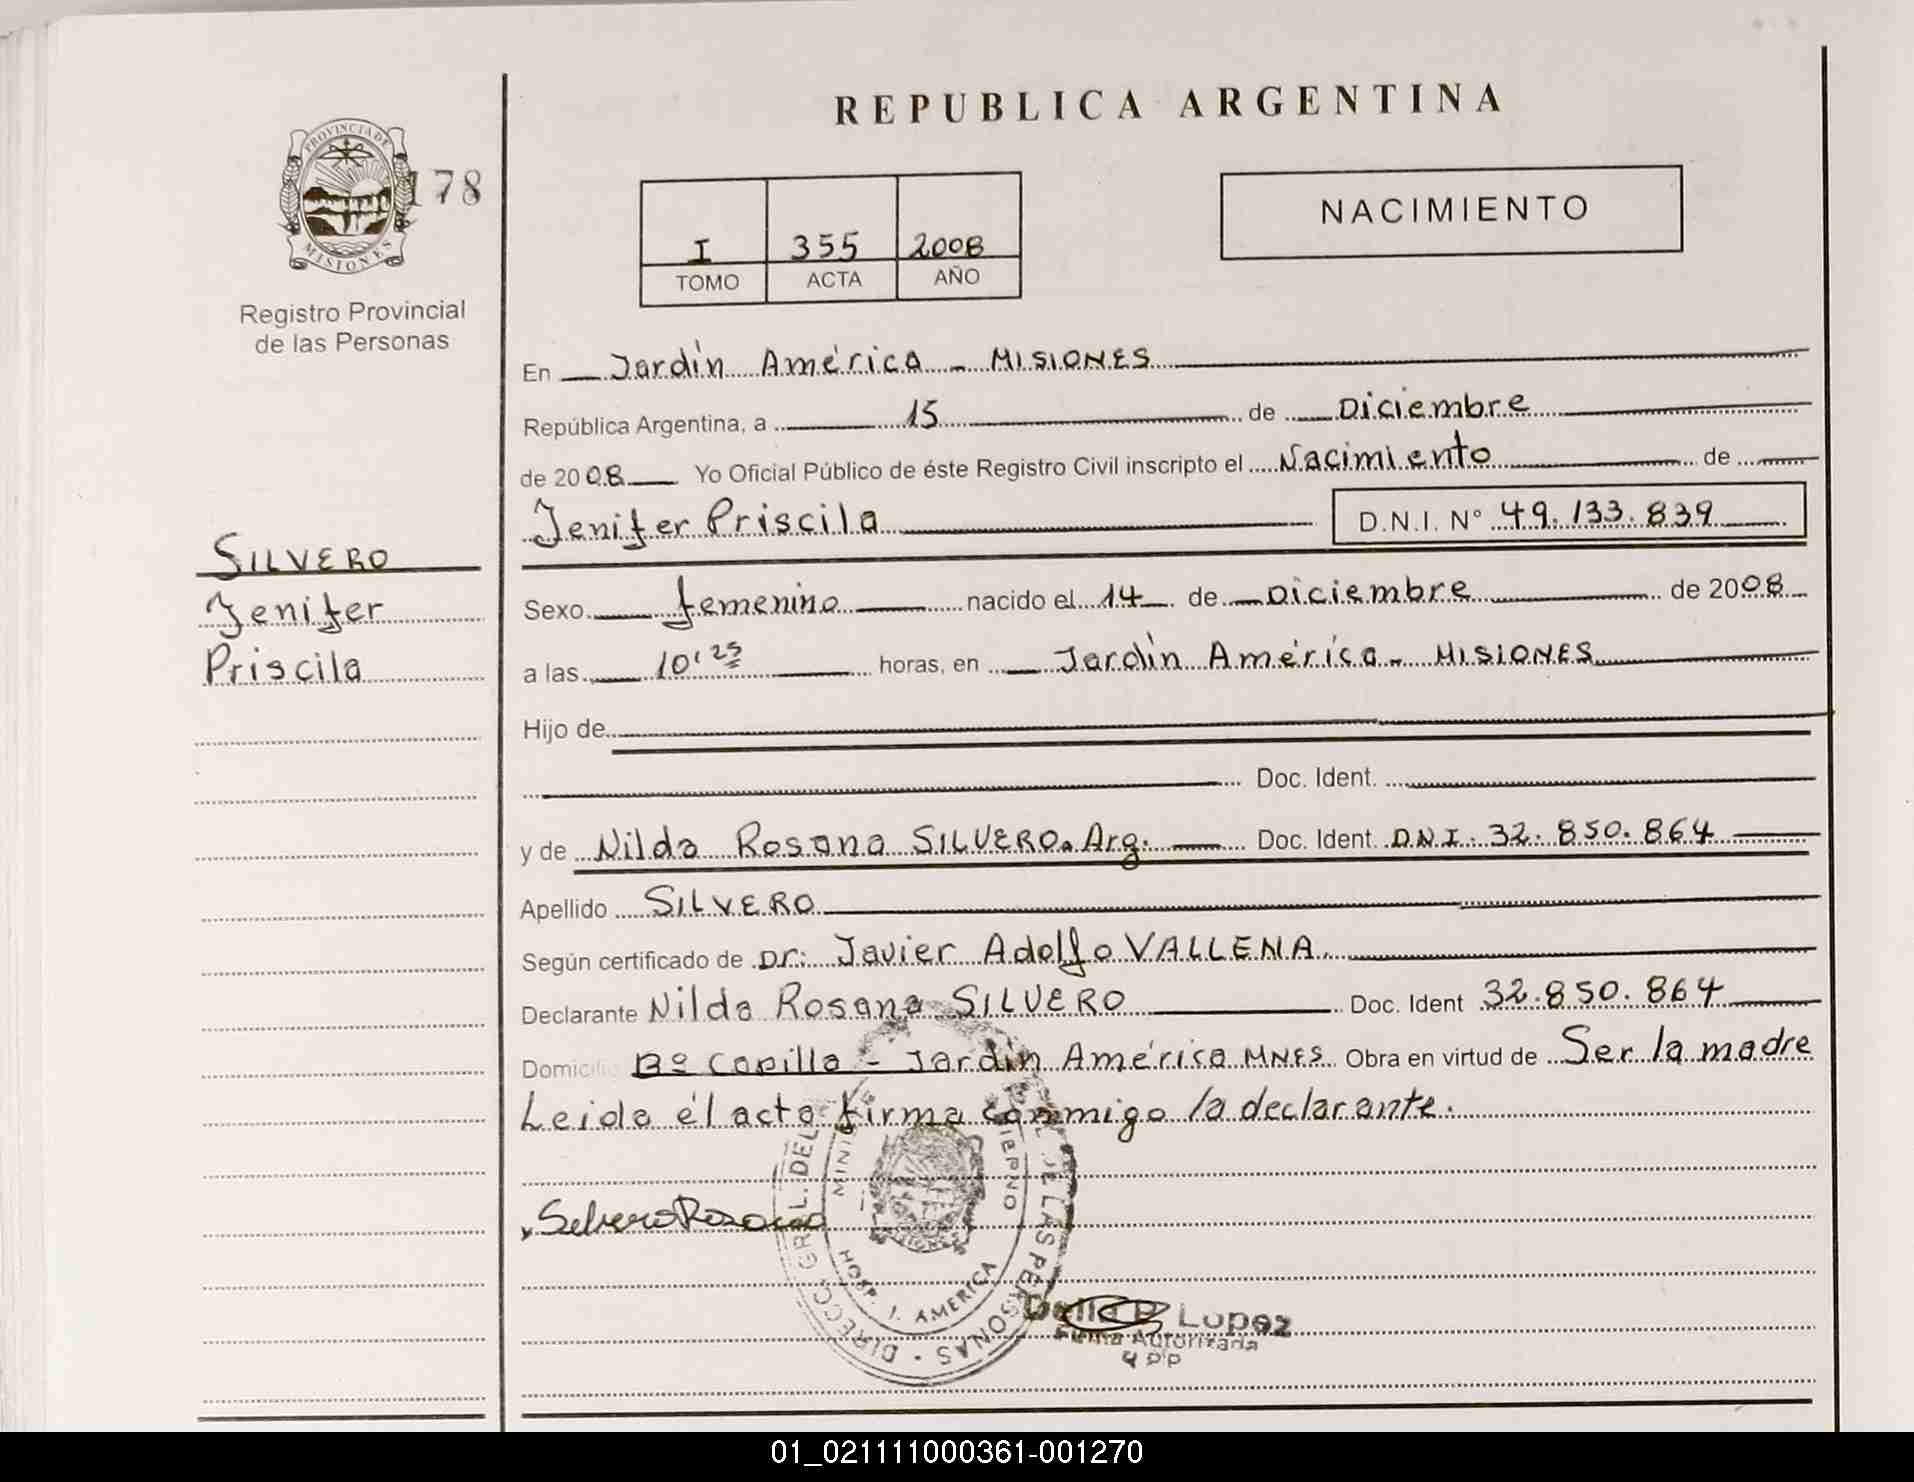 REPUBLICA ARGENTINA
PROVINCIA DE
MISIONES
178
Registro Provincial
de las Personas
I 355 2008
TOMO ACTA AÑO
NACIMIENTO
SILVERO
Jenifer
Priscila
En Jardín América - MISIONES
República Argentina, a 15 de Diciembre
de 2008 Yo Oficial Público de éste Registro Civil inscripto el Nacimiento de
Jenifer Priscila D.N.I. Nº 49.133.839
Sexo femenino nacido el 14 de Diciembre de 2008
a las 10'25 horas, en Jardín América - MISIONES
Hijo de
Doc. Ident.
y de Nilda Rosana SILVERO. Arg. Doc. Ident. D.N.I. 32.850.864
Apellido SILVERO
Según certificado de Dr: Javier Adolfo VALLENA.
Declarante Nilda Rosana SILVERO Doc. Ident 32.850.864
Domicilio Bº Capilla - Jardín América MNES Obra en virtud de Ser la madre
Leida el acta firma conmigo la declarante.
Silvero Rosana
DIRECC. GRAL. DEL DE LAS PERSONAS
HOSP. J. AMERICA
Lopez
Firma Autorizada
01_021111000361-001270